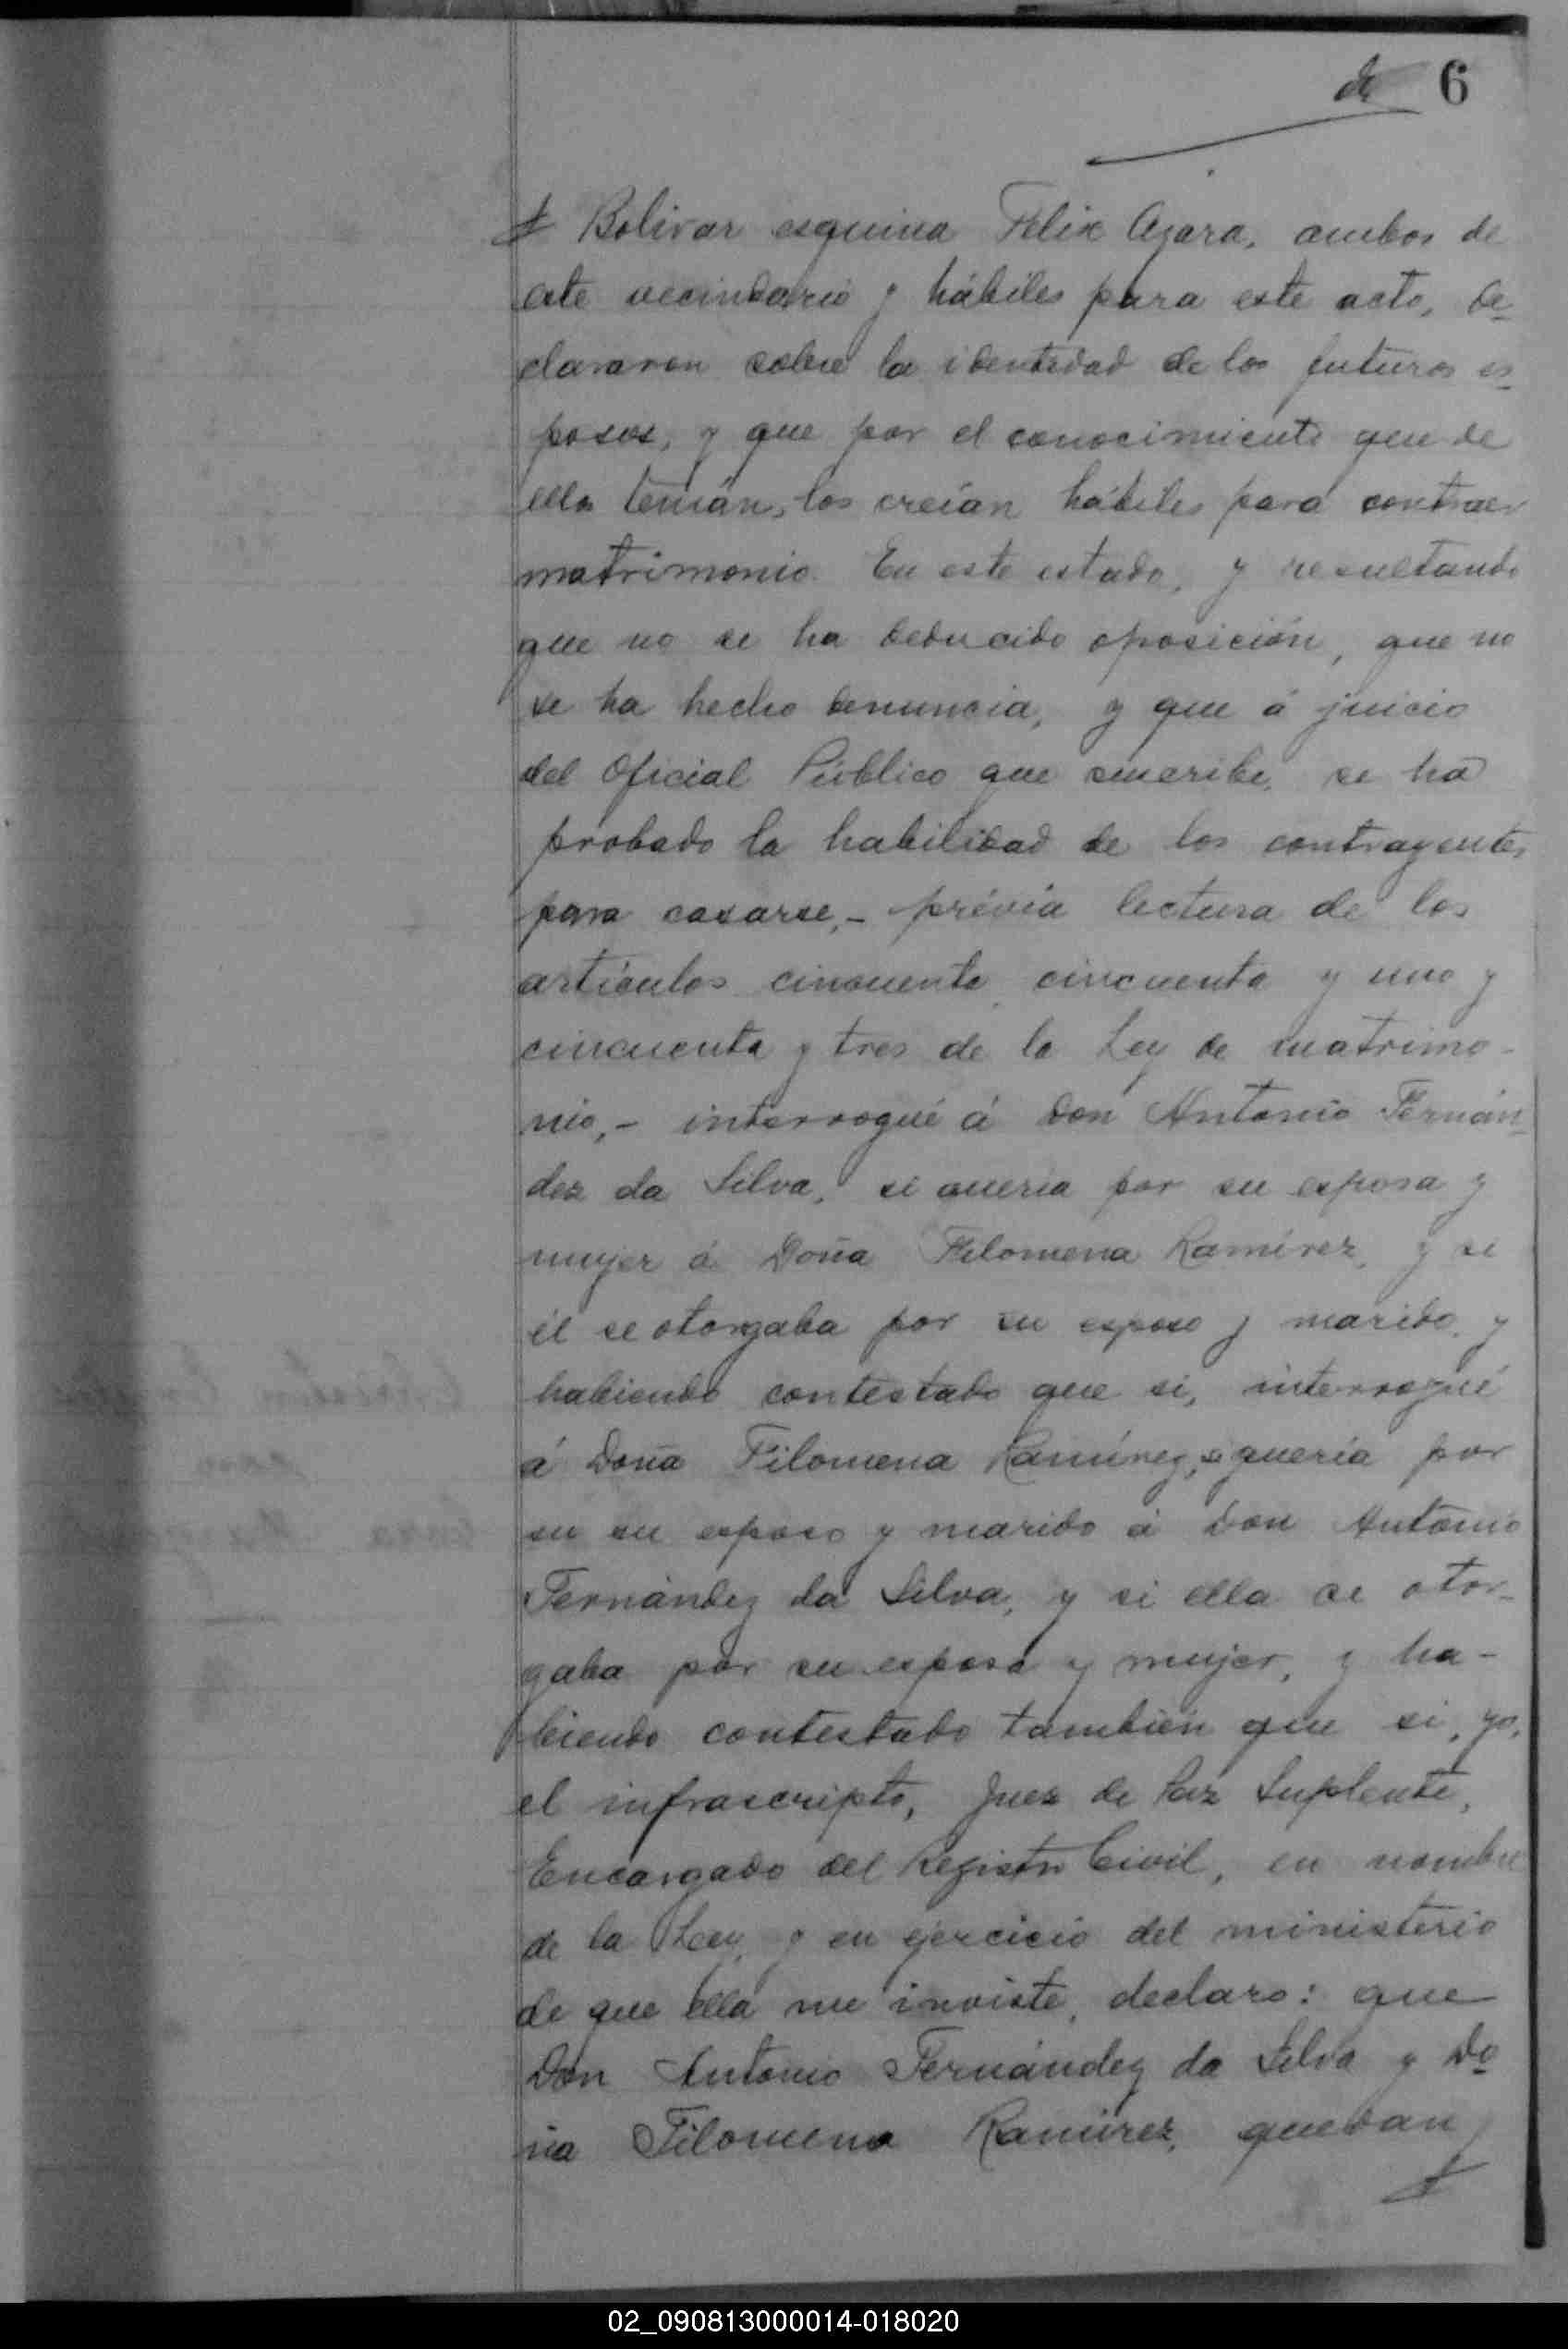 de 6
Bolivar esquina Félix Azara, ambos de
este vecindario y hábiles para este acto, de-
clararon sobre la identidad de los futuros es-
posos, y que por el conocimiento que de
ellos tenían, los creían hábiles para contraer
matrimonio. En este estado, y resultando
que no se ha deducido oposición, que no
se ha hecho denuncia, y que á juicio
del Oficial Público que suscribe, se ha
probado la habilidad de los contrayentes
para casarse,- prévia lectura de los
artículos cincuenta, cincuenta y uno y
cincuenta y tres de la Ley de matrimo-
nio,- interrogué á Don Antonio Fernán-
dez da Silva, si queria por su esposa y
mujer á Doña Filomena Ramírez, y si
él se otorgaba por su esposo y marido, y
habiendo contestado que si, interrogué
á Doña Filomena Ramírez, si quería por
su su esposo y marido á Don Antonio
Fernández da Silva, y si ella se otor-
gaba por su esposa y mujer, y ha-
biendo contestado también que si, yo,
el infrascripto, Juez de Paz Suplente,
Encargado del Registro Civil, en nombre
de la Ley, y en ejercicio del ministerio
de que ella me inviste, declaro: que
Don Antonio Fernández da Silva y Do-
ña Filomena Ramírez, quedan
02_090813000014-018020